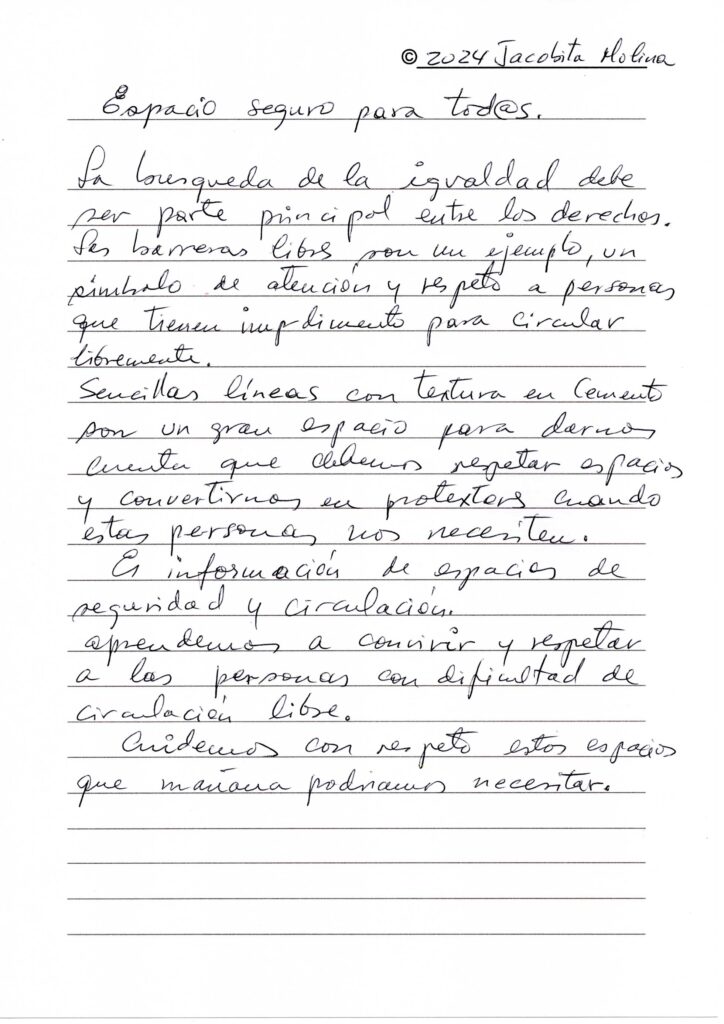 © 2024 Jacobita Molina
Espacio seguro para tod@s.
La busqueda de la igualdad debe
ser parte principal entre los derechos.
Las barreras libres son un ejemplo, un
símbolo de atención y respeto a personas
que tienen impedimento para circular
libremente.
Sencillas líneas con textura en Cemento
son un gran espacio para darnos
cuenta que debemos respetar espacios
y convertirnos en protextors cuando
estas personas nos necesiten.
Es información de espacios de
seguridad y circulación.
aprendemos a convivir y respetar
a las personas con dificultad de
circulación libre.
Cuidemos con respeto estos espacios
que mañana podriamos necesitar.